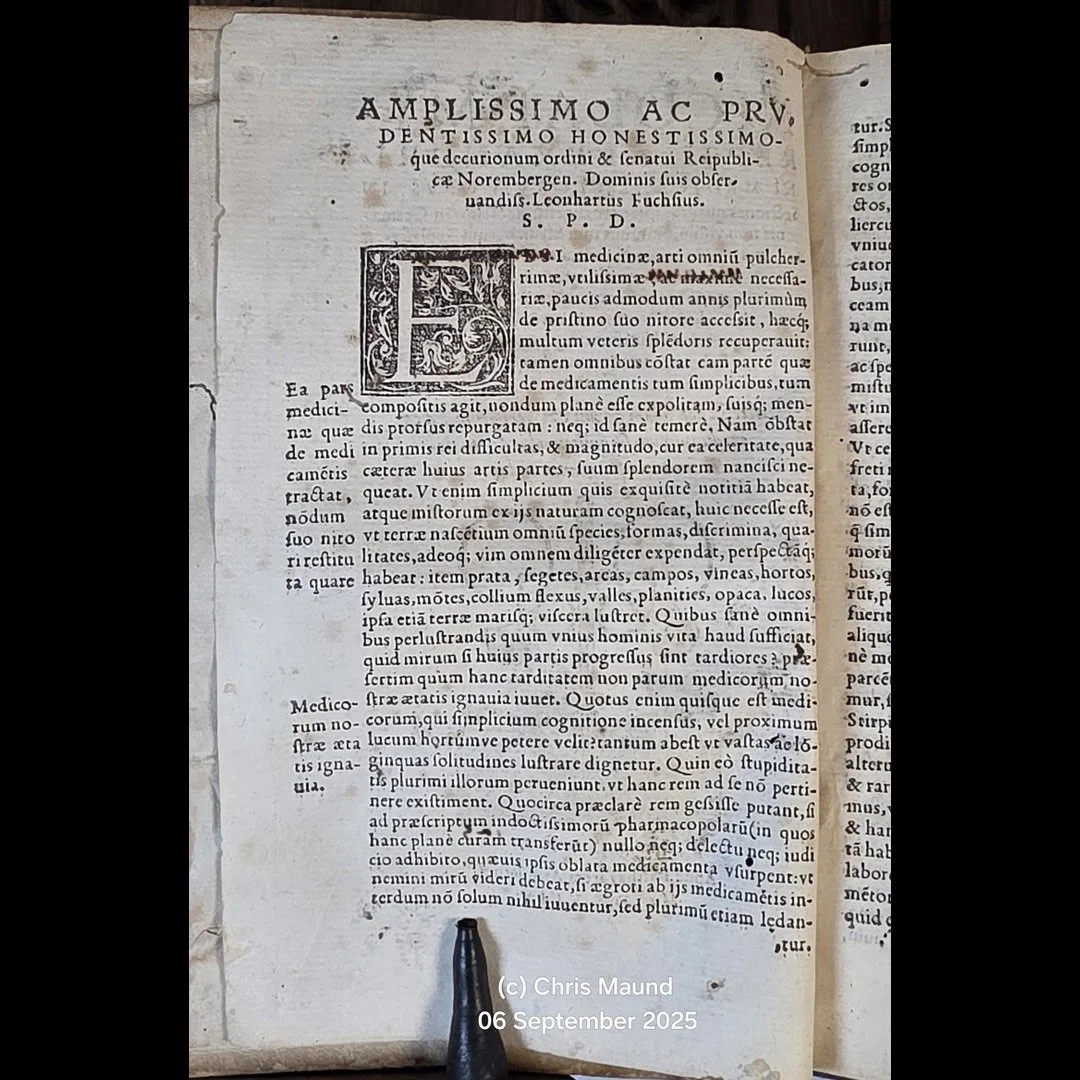 AMPLISSIMO AC PRV,
DENTISSIMO HONESTISSIMO-
q́ue decurionum ordini & ſenatui Reipubli-
cæ Norembergen. Dominis ſuis obſer-
uandiſs. Leonhartus Fuchſius.
S. P. D.
E I medicinæ, arti omniũ pulcher-
rimæ, vtiliſsimæ, ac maximè neceſſa-
riæ, paucis admodum annis plurimùm
de priſtino ſuo nitore acceſsit, hæcq́;
multum veteris ſplẽdoris recuperauit:
tamen omnibus cõſtat eam partẽ quæ
de medicamentis tum ſimplicibus, tum
compoſitis agit, nondum planè eſſe expolitam, ſuisq́; men-
dis prorſus repurgatam: neq; id ſanè temerè. Nam õbſtat
in primis rei difficultas, & magnitudo, cur ea celeritate, qua
cæteræ huius artis partes, ſuum ſplendorem nanciſci ne-
queat. Vt enim ſimplicium quis exquiſitè notitiã habeat,
atque miſtorum ex ijs naturam cognoſcat, huic neceſſe eſt,
vt terræ naſcẽtium omniũ ſpecies, formas, diſcrimina, qua-
litates, adeoq́; vim omnem diligẽter expendat, perſpectãq́;
habeat: item prata, ſegetes, areas, campos, vineas, hortos,
ſyluas, mõtes, collium flexus, valles, planities, opaca, lucos,
ipſa etiã terræ marisq́; viſcera luſtret. Quibus ſanè omni-
bus perluſtrandis quum vnius hominis vita haud ſufficiat,
quid mirum ſi huius partis progreſſus ſint tardiores? præ-
ſertim quum hanc tarditatem non parum medicorum no-
ſtræ ætatis ignauia iuuet. Quotus enim quiſque eſt medi-
corum, qui ſimplicium cognitione incenſus, vel proximum
lucum hortúmve petere velit? tantum abeſt vt vaſtas ac lõ-
ginquas ſolitudines luſtrare dignetur. Quin eò ſtupidita-
tis plurimi illorum perueniunt, vt hanc rem ad ſe nõ perti-
nere exiſtiment. Quocirca præclarè rem geſsiſſe putant, ſi
ad præſcriptum indoctiſsimorũ pharmacopolarũ (in quos
hanc planè curam transferũt) nullo neq; delectu neq; iudi
cio adhibito, quæuis ipſis oblata medicamenta vſurpent: vt
nemini mirũ videri debeat, ſi ægroti ab ijs medicamẽtis in-
terdum nõ ſolum nihil iuuentur, ſed plurimũ etiam lędan-
tur.
Ea pars
medici-
næ quæ
de medi
camẽtis
tractat,
nõdum
ſuo nito
ri reſtitu
ta quare
Medico-
rum no-
ſtræ æta
tis igna-
uia.
tur. S
ſimp
cogn
res o
ctos,
liercu
vniu
cator
bus, n
ceam
na m
runt,
ac ſpe
miſtu
vt im
aſſere
Vt ce
freti
ta, fo
nõ eſ
q̃ ſim
morũ
bus, q
rũt, p
fuerit
aliquo
nè m
parcẽ
mur, ſ
Stirp
prodi
alteru
& rar
mus, v
& har
tã hab
labor
mẽto
quid
(c) Chris Maund
06 September 2025